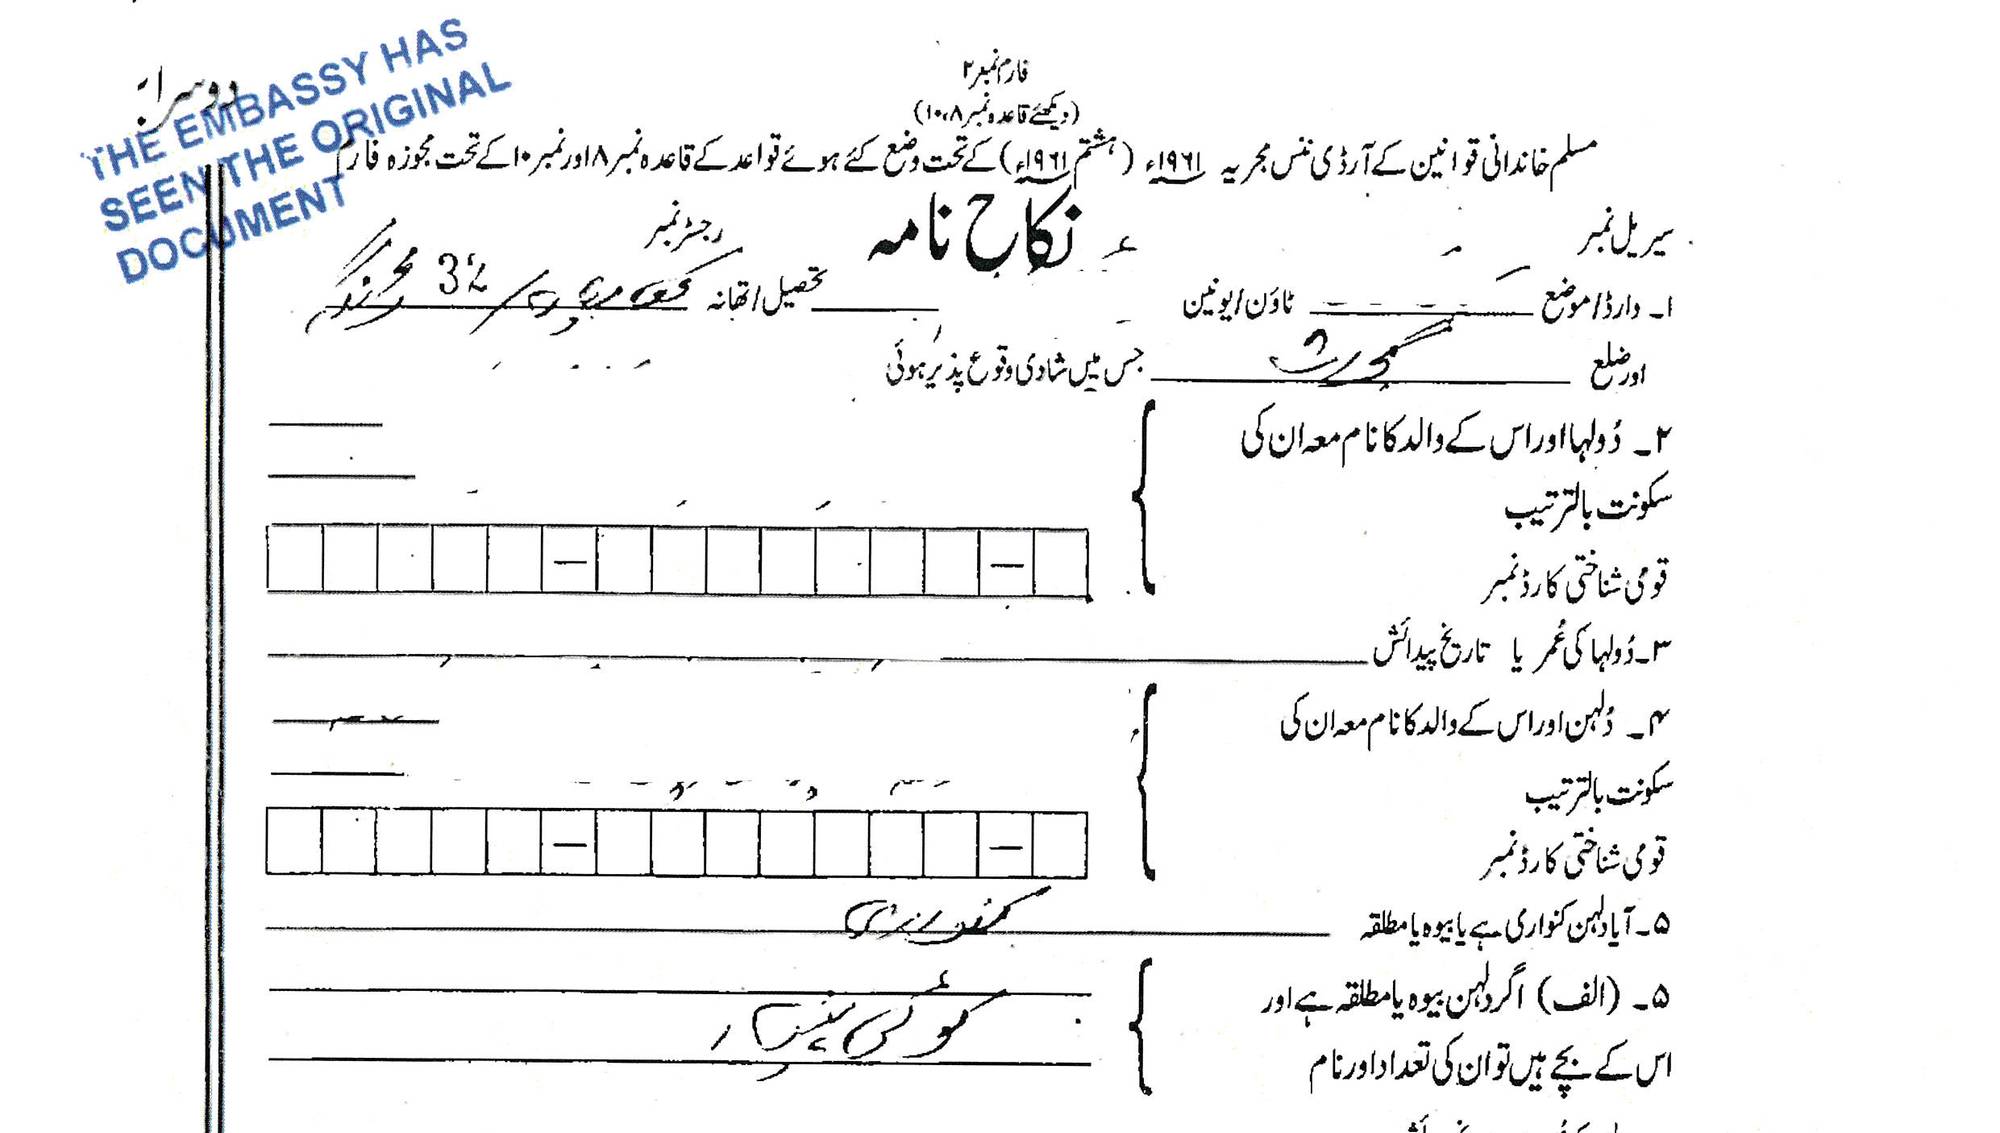 THE EMBASSY HAS
SEEN THE ORIGINAL
DOCUMENT
فارم نمبر ۲
(دیکھئے قاعدہ نمبر ۸،۱۰)
مسلم خاندانی قوانین کے آرڈی ننس مجریہ ۱۹۶۱ء (ہشتم ۱۹۶۱ء) کے تحت وضع کئے ہوئے قواعد کے قاعدہ نمبر ۸ اور نمبر ۱۰ کے تحت مجوزہ فارم
نکاح نامہ
سیریل نمبر رجسٹر نمبر
۱۔ وارڈ/موضع ٹاؤن/یونین تحصیل/تھانہ 32
اور ضلع گجرات جس میں شادی وقوع پذیر ہوئی
۲۔ دُولہا اور اس کے والد کا نام معہ ان کی
سکونت بالترتیب
قومی شناختی کارڈ نمبر
۳۔ دُولہا کی عُمر یا تاریخ پیدائش
۴۔ دُلہن اور اس کے والد کا نام معہ ان کی
سکونت بالترتیب
قومی شناختی کارڈ نمبر
۵۔ آیا دلہن کنواری ہے یا بیوہ یا مطلقہ کنواری
۵۔ (الف) اگر دلہن بیوہ یا مطلقہ ہے اور
اس کے بچے ہیں تو ان کی تعداد اور نام کوئی نہیں